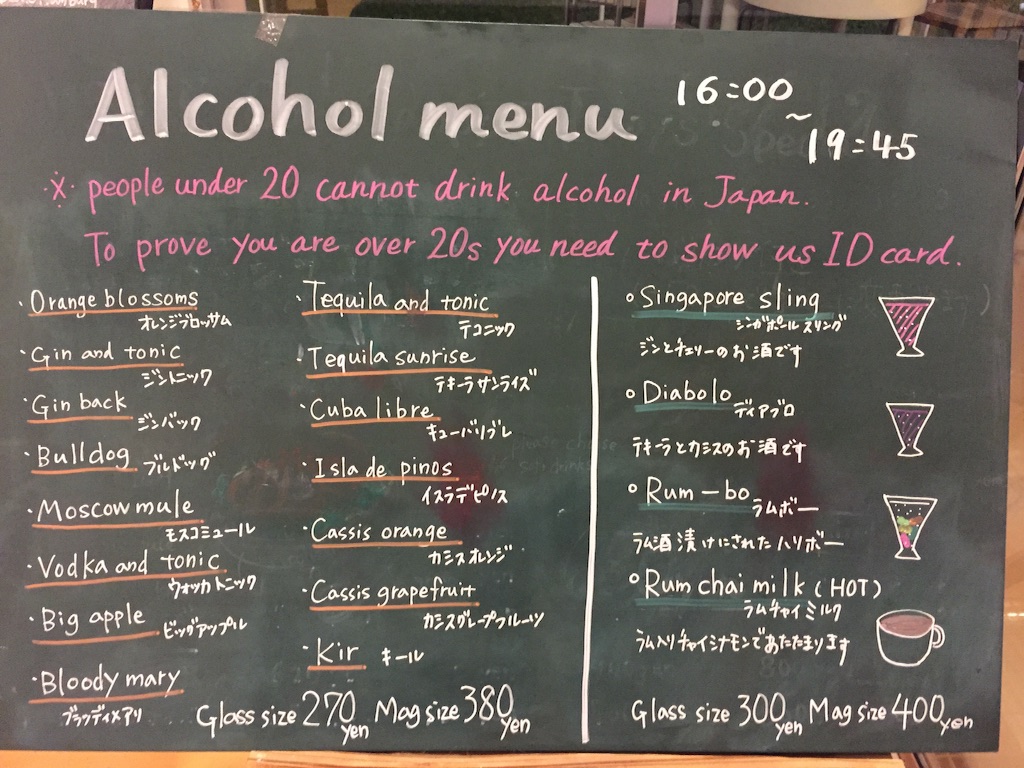 Alcohol menu
16:00
~
19:45
※ people under 20 cannot drink alcohol in Japan.
To prove you are over 20s you need to show us ID card.
・Orange blossoms
オレンジブロッサム
・Gin and tonic
ジントニック
・Gin back
ジンバック
・Bulldog ブルドッグ
・Moscow mule
モスコミュール
・Vodka and tonic
ウォッカトニック
・Big apple ビッグアップル
・Bloody mary
ブラッディメアリ
・Tequila and tonic
テコニック
・Tequila sunrise
テキーラサンライズ
・Cuba libre
キューバリブレ
・Isla de pinos
イスラデピノス
・Cassis orange
カシスオレンジ
・Cassis grapefruit
カシスグレープフルーツ
・Kir キール
Glass size 270yen Mag size 380yen
○Singapore sling
シンガポールスリング
ジンとチェリーのお酒です
○Diabolo ディアブロ
テキーラとカシスのお酒です
○Rum-bo ラムボー
ラム酒漬けにされたハリボー
○Rum chai milk (HOT)
ラムチャイミルク
ラム入りチャイシナモンであたたまります
Glass size 300yen Mag size 400yen